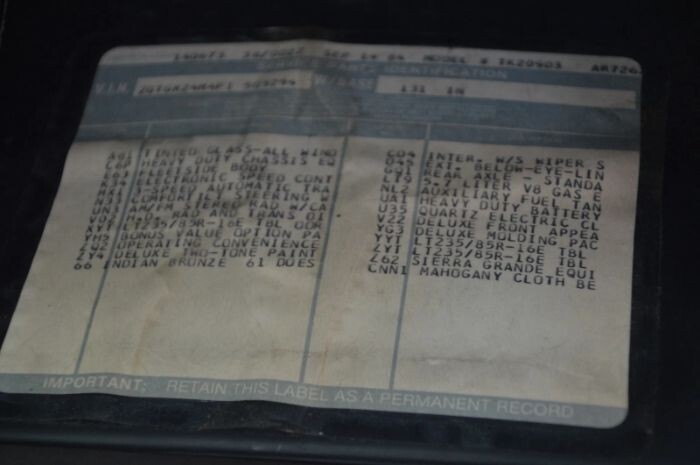 SEP 84 MODEL # TK20903
SERVICE PARTS IDENTIFICATION
V.I.N. W/BASE 131 IN
A01 TINTED GLASS-ALL WIND
HEAVY DUTY CHASSIS EQ
E63 FLEETSIDE BODY
K34 ELECTRONIC SPEED CONT
-SPEED AUTOMATIC TRA
N33 COMFORTILT STEERING W
AM/FM STEREO RAD W/CA
V02 H.D. RAD AND TRANS OI
XYT LT235/85R-16E TBL OOR
YH5 BONUS VALUE OPTION PA
OPERATING CONVENIENCE
ZY4 DELUXE TWO-TONE PAINT
66 INDIAN BRONZE 61 DOES
C04 INTER. W/S WIPER S
D45 EXT. BELOW-EYE-LIN
GQ1 REAR AXLE - STANDA
LT9 5.7 LITER V8 GAS E
NL2 AUXILIARY FUEL TAN
UA1 HEAVY DUTY BATTERY
U35 QUARTZ ELECTRIC CL
V22 DELUXE FRONT APPEA
YG3 DELUXE MOLDING PAC
YYT LT235/85R-16E TBL
ZYT LT235/85R-16E TBL
Z62 SIERRA GRANDE EQUI
CNN1 MAHOGANY CLOTH BE
IMPORTANT: RETAIN THIS LABEL AS A PERMANENT RECORD